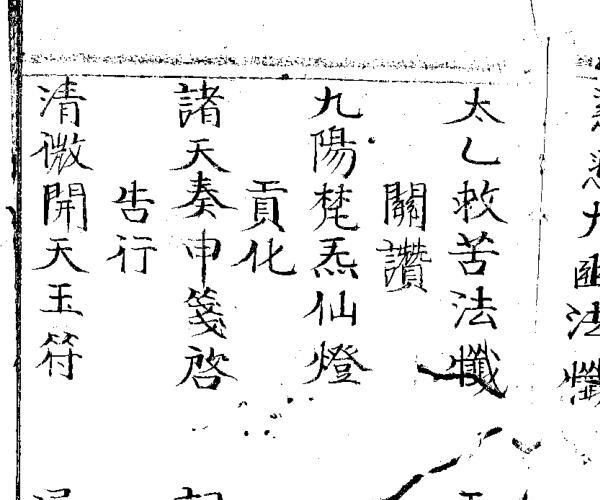 大匭法懺
太乙救苦法懺
關讚
九陽梵炁仙燈
貢化
諸天奏申箋啓
告行
清微開天玉符